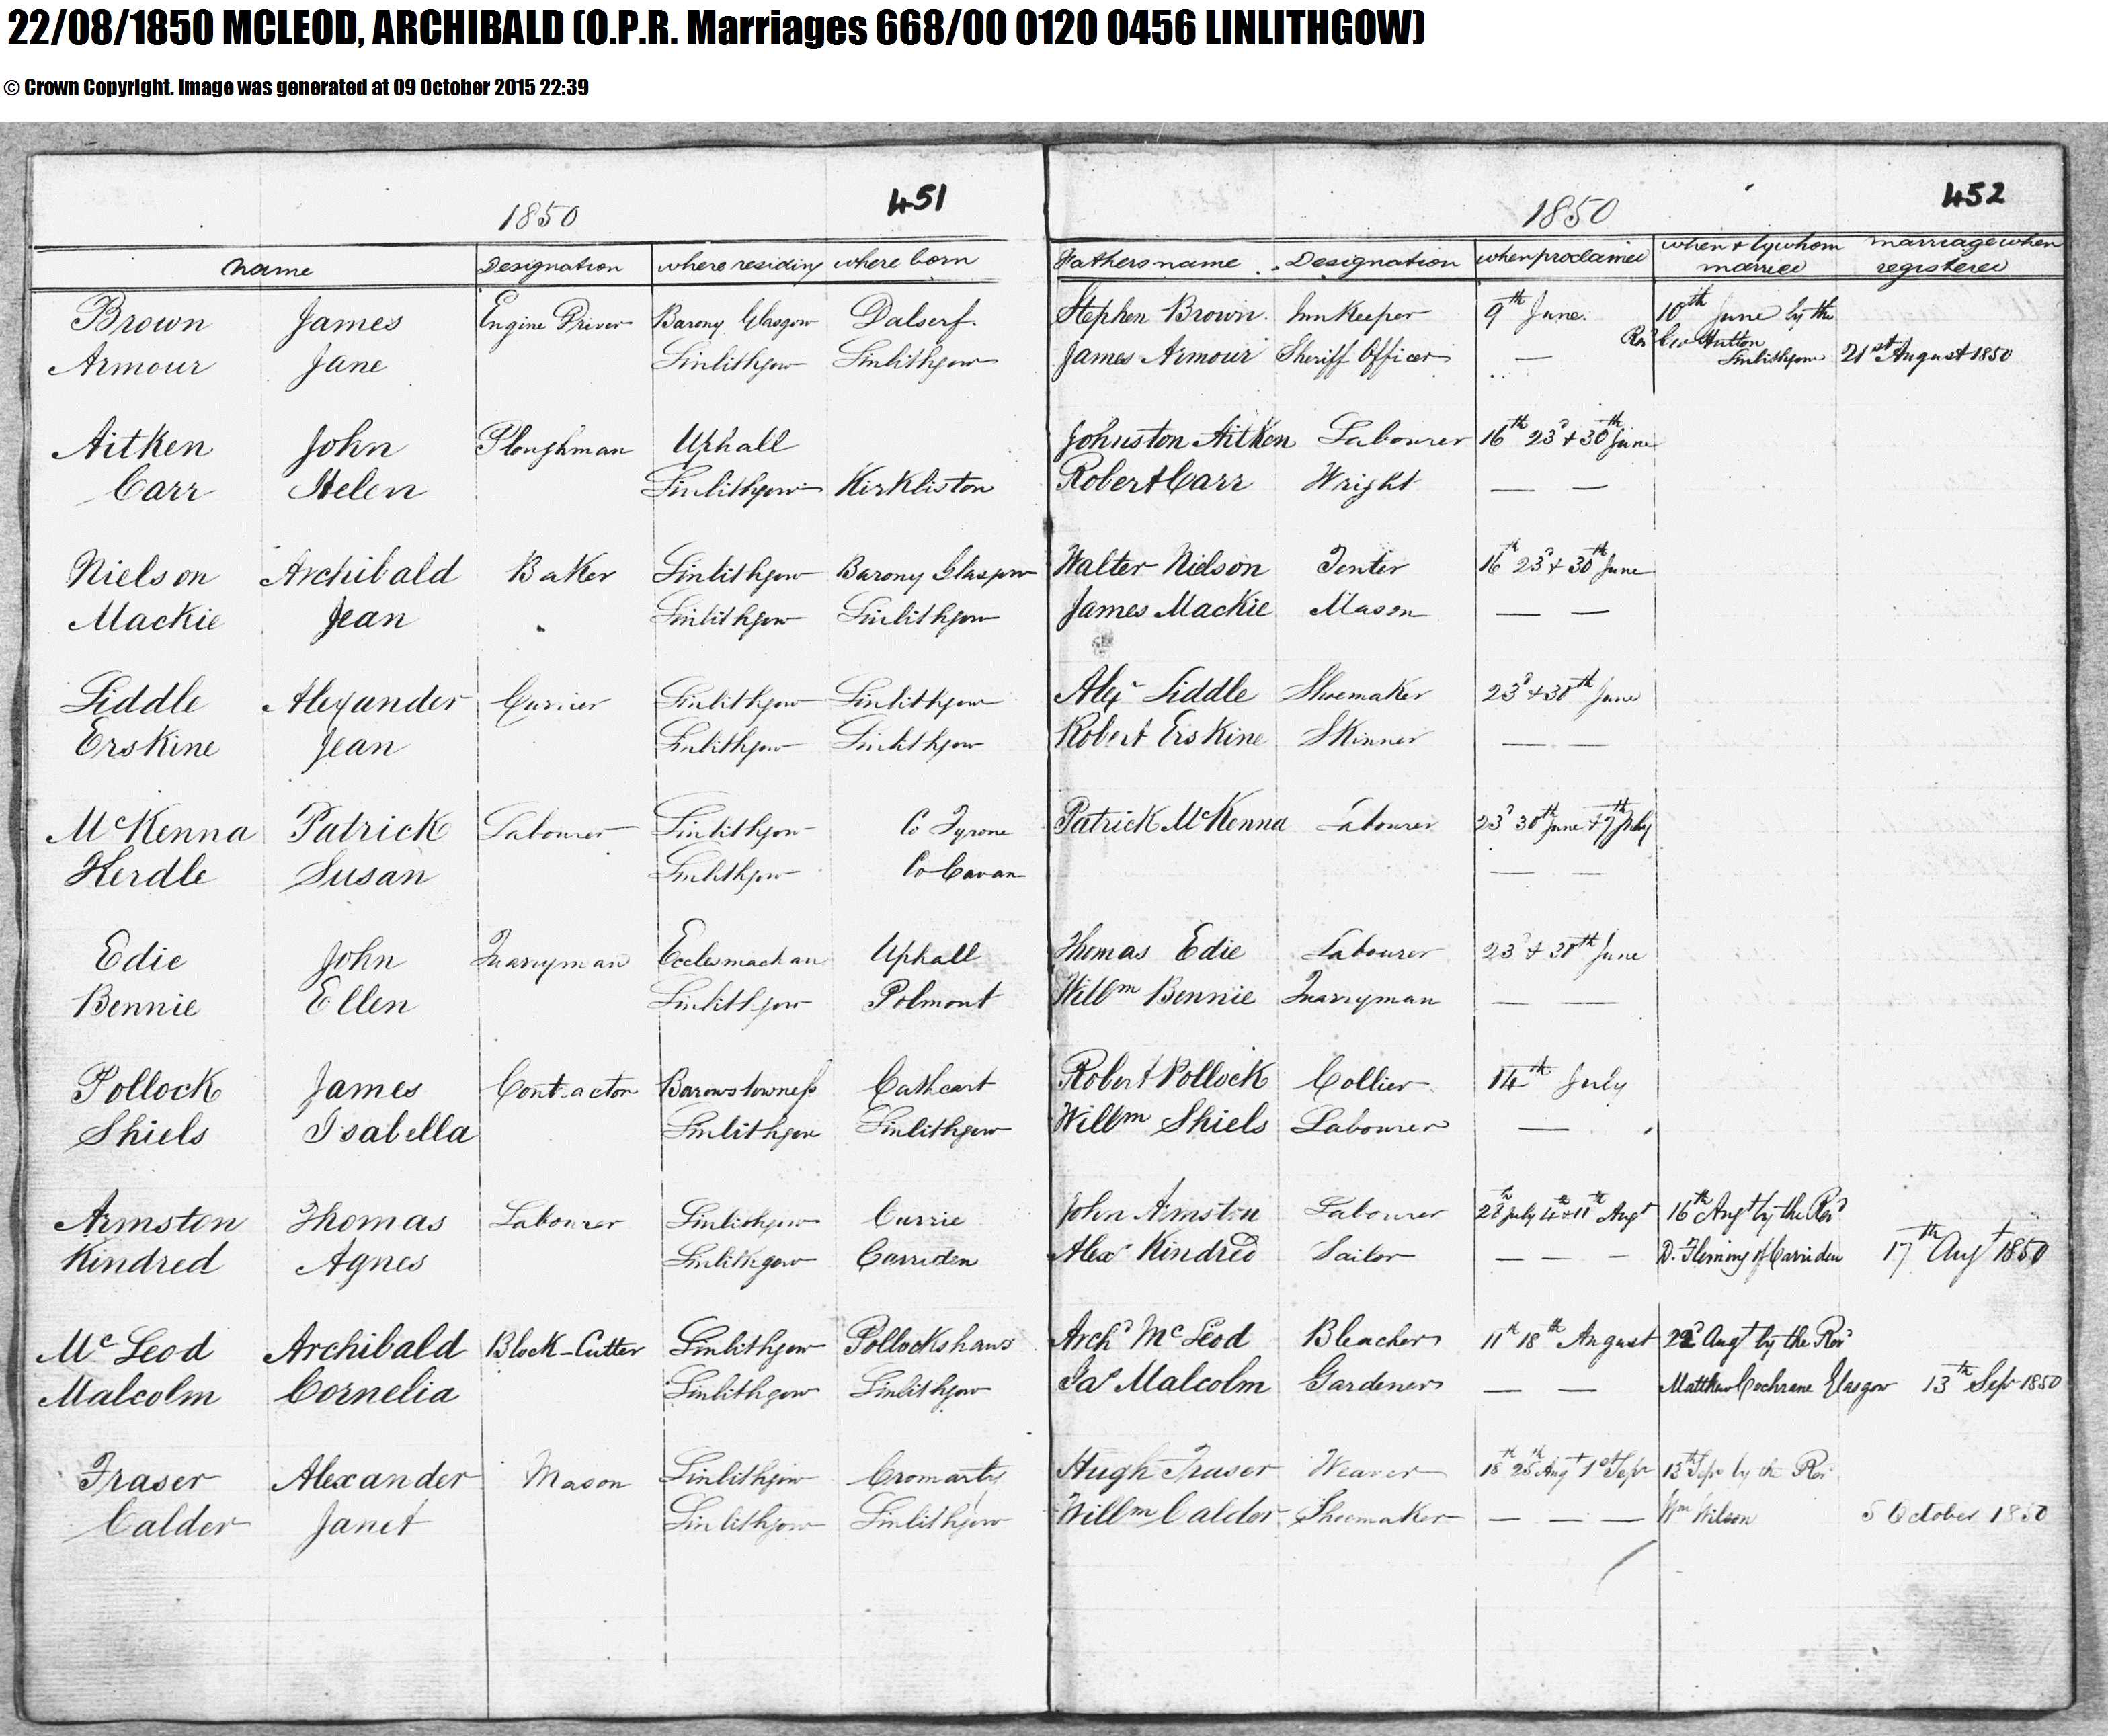 22/08/1850 MCLEOD, ARCHIBALD (O.P.R. Marriages 668/00 0120 0456 LINLITHGOW)
© Crown Copyright. Image was generated at 09 October 2015 22:39
1850 451
Name Designation where residing where born
Brown James Engine Driver Barony Glasgow Dalserf
Armour Jane Linlithgow Linlithgow
Aitken John Ploughman Uphall
Carr Helen Linlithgow Kirkliston
Nielson Archibald Baker Linlithgow Barony Glasgow
Mackie Jean Linlithgow Linlithgow
Liddle Alexander Currier Linlithgow Linlithgow
Erskine Jean Linlithgow Linlithgow
McKenna Patrick Labourer Linlithgow Co Tyrone
Herdle Susan Linlithgow Co Cavan
Edie John Quarryman Ecclesmachan Uphall
Bennie Ellen Linlithgow Polmont
Pollock James Contractor Barowstowness Cathcart
Shiels Isabella Linlithgow Linlithgow
Armston Thomas Labourer Linlithgow Currie
Kindred Agnes Linlithgow Carriden
McLeod Archibald Block-Cutter Linlithgow Pollockshaws
Malcolm Cornelia Linlithgow Linlithgow
Fraser Alexander Mason Linlithgow Cromarty
Calder Janet Linlithgow Linlithgow
1850 452
Fathers name Designation when proclaimed when & by whom married marriage when registered
Stephen Brown Inn Keeper 9th June. 10th June by the
Revd Geo Hutton
James Armour Sheriff Officer — Linlithgow 21st August 1850
Johnston Aitken Labourer 16th 23d & 30th June
Robert Carr Wright — —
Walter Nielson Tenter 16th 23d & 30th June
James Mackie Mason — —
Alexr Liddle Shoemaker 23d & 30th June
Robert Erskine Skinner — —
Patrick McKenna Labourer 23d 30th June & 7th July
— —
Thomas Edie Labourer 23d & 30th June
Willm Bennie Quarryman — —
Robert Pollock Collier 14th July
Willm Shiels Labourer —
John Armston Labourer 28th July 4th & 11th Augt 16th Augt by the Revd
Alexr Kindred Sailor — — — D. Fleming of Carriden 17th Augt 1850
Archd McLeod Bleacher 11th 18th August 22d Augt by the Revd
Jas Malcolm Gardener — — Matthew Cochrane Glasgow 13th Sepr 1850
Hugh Fraser Weaver 18th 25th Augt 1st Sepr 13th Sepr by the Revd
Willm Calder Shoemaker — — — Wm Wilson 5 October 1850